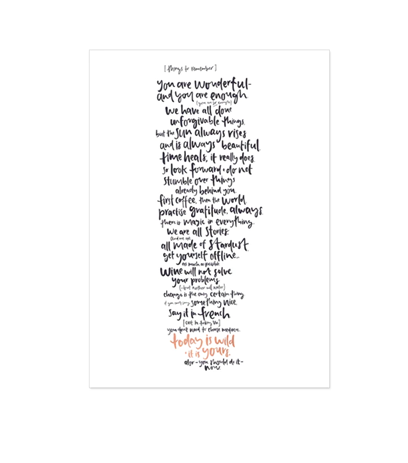 [things to remember]
you are wonderful-
and you are enough
we have all done
unforgivable things,
but the sun always rises
and is always beautiful
time heals, it really does.
so look forward + do not
stumble over things
already behind you.
first coffee, then the world
practise gratitude, always
there is magic in everything
we are all stories.
all made of stardust
get yourself offline..
as much as possible.
wine will not solve
your problems.
change is the only certain thing
something nice
say it in french
you don't need to chase
today is wild
-it is yours.
also-you should do it-
now.